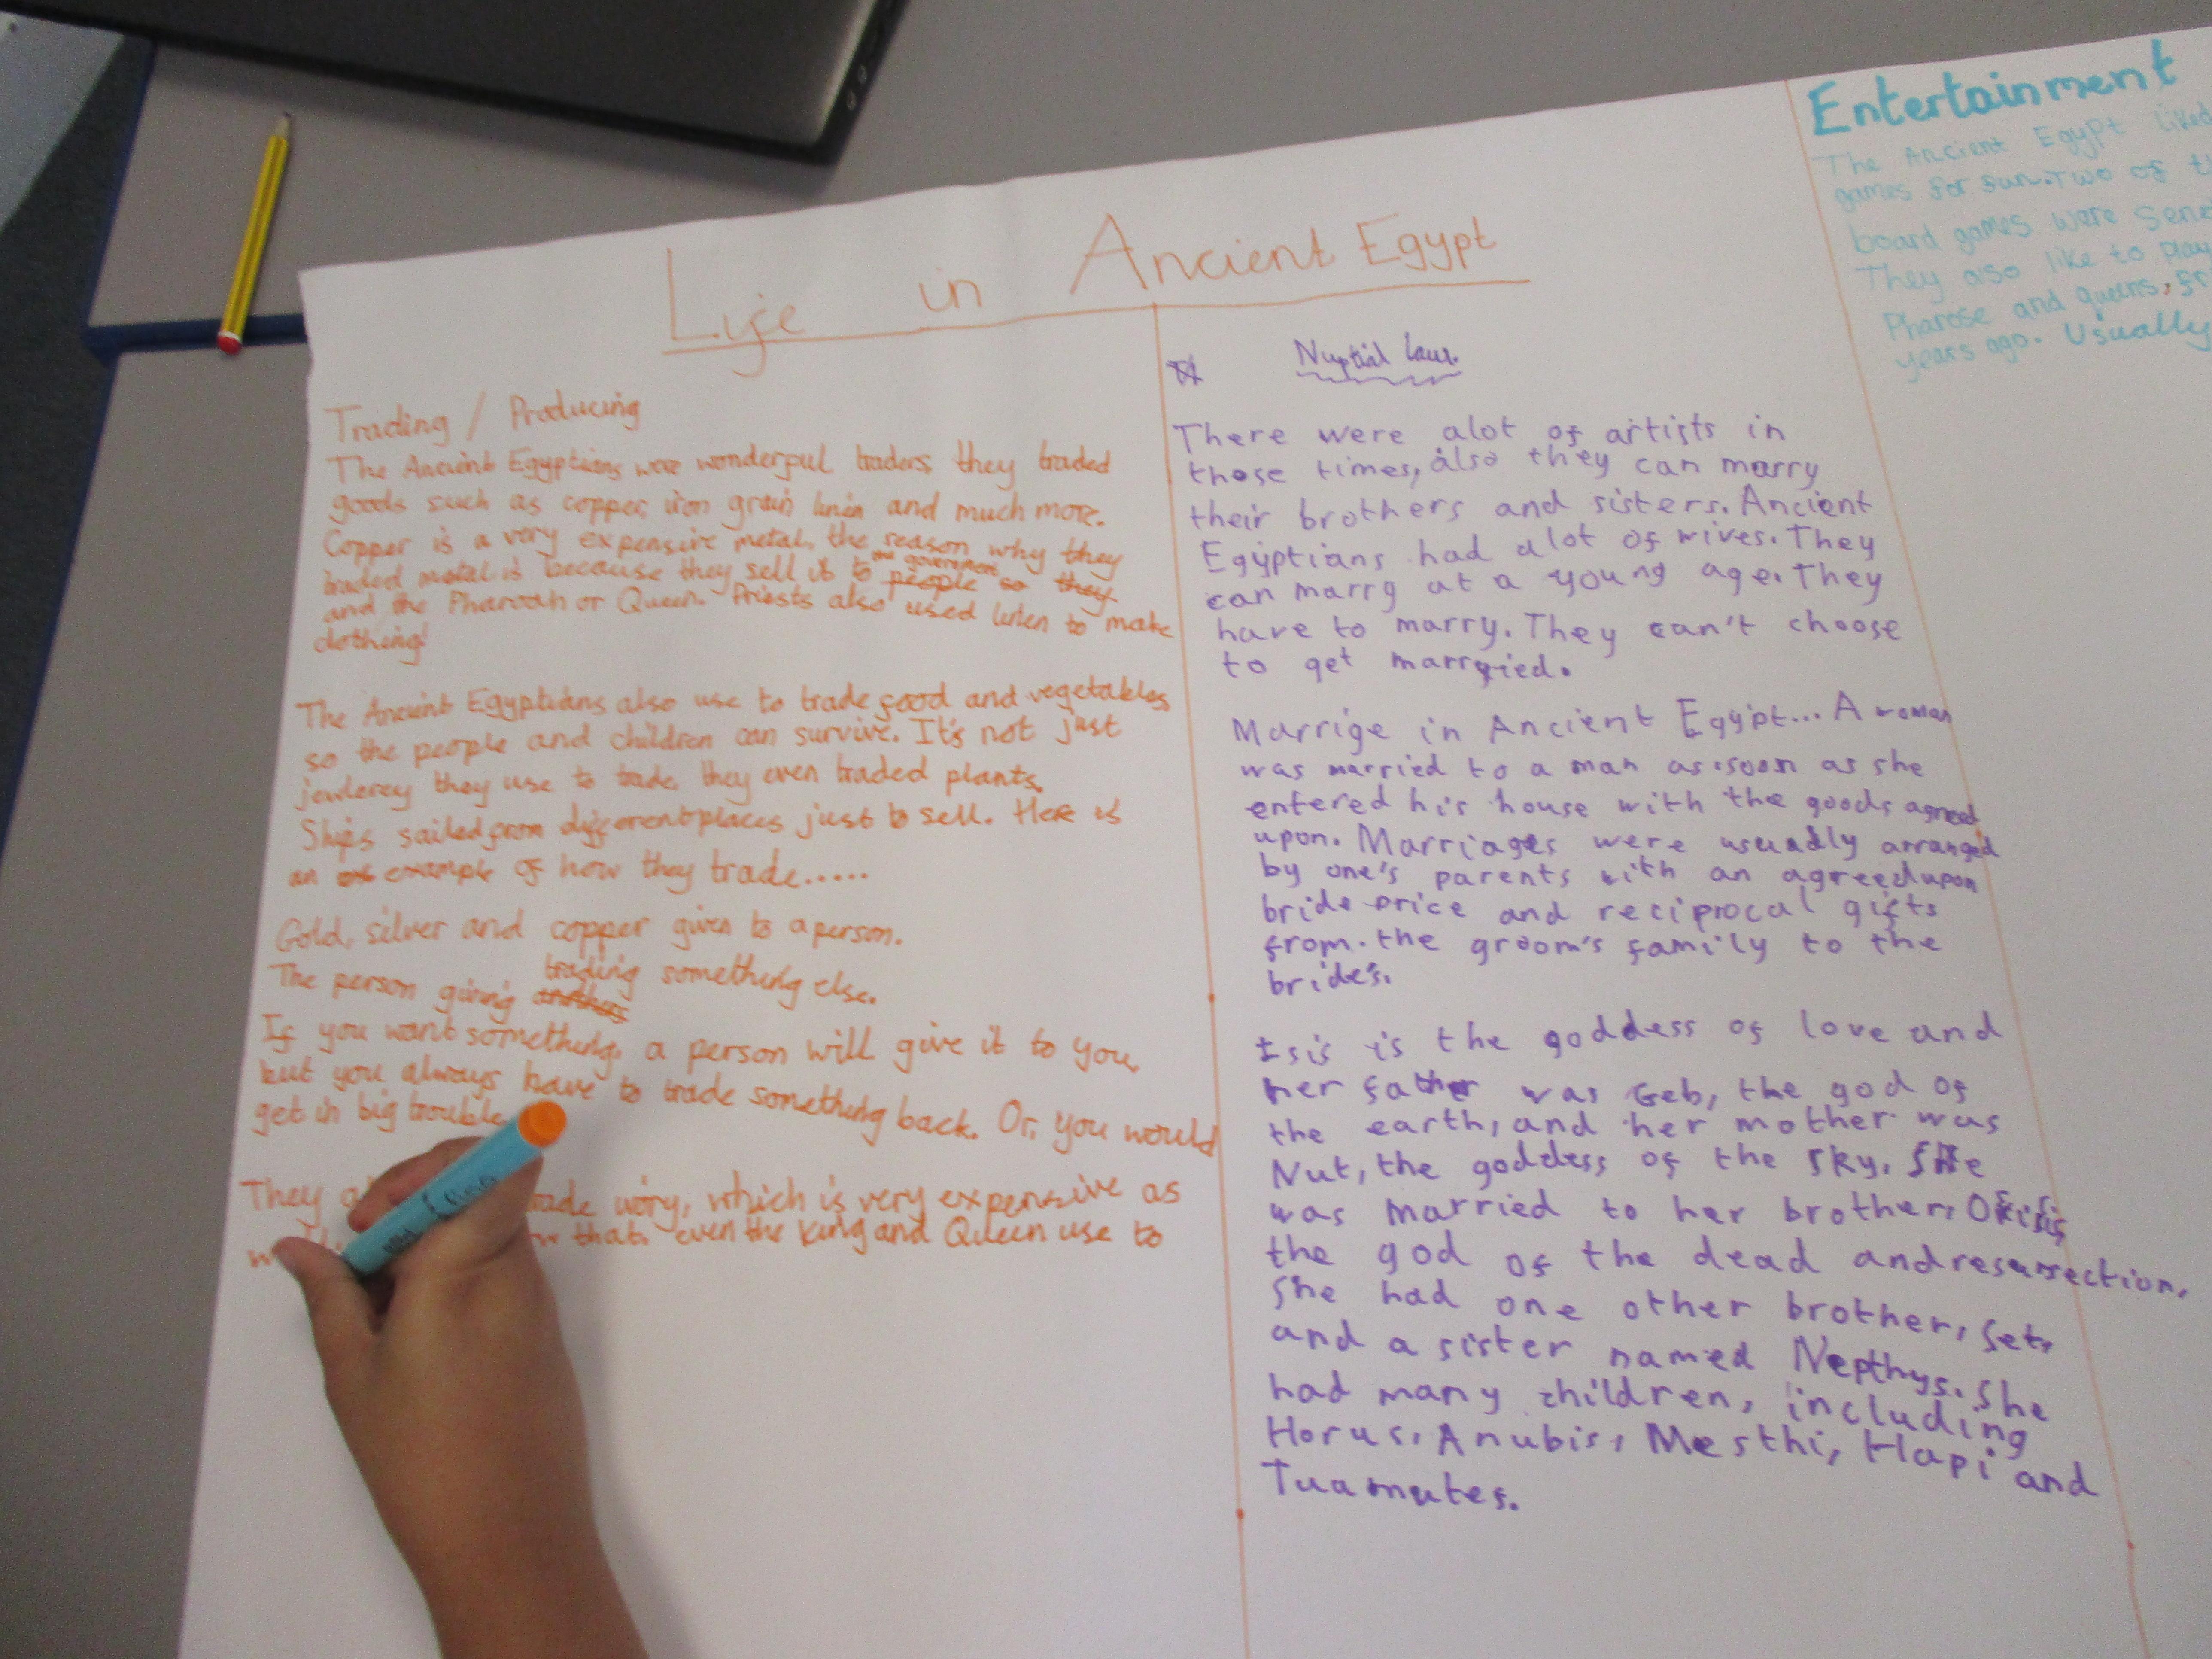 Life in Ancient Egypt
Trading / Producing
The Ancient Egyptians were wonderful traders they traded
goods such as copper, iron grain linen and much more.
Copper is a very expensive metal, the reason why they
traded metal is because they sell it to the government people so they
and the Pharoah or Queen. Priests also used linen to make
clothing!
The Ancient Egyptians also use to trade food and vegetables
so the people and children can survive. It's not just
jewlerey they use to trade, they even traded plants.
Ships sailed from different places just to sell. Here is
an example of how they trade.....
Gold, silver and copper given to a person.
The person giving trading something else.
If you want something, a person will give it to you,
but you always have to trade something back. Or, you would
get in big trouble
They rade ivory, which is very expensive as
that, even the King and Queen use to
Nuptial Law.
There were alot of artists in
those times, also they can marry
their brothers and sisters. Ancient
Egyptians had alot of wives. They
can marry at a young age. They
have to marry. They can't choose
to get marryied.
Marrige in Ancient Egypt... A woman
was married to a man as soon as she
entered his house with the goods agreed
upon. Marriages were usually arranged
by one's parents with an agreed upon
bride price and reciprocal gifts
from the groom's family to the
bride's.
Isis is the goddess of love and
her father was Geb, the god of
the earth, and her mother was
Nut, the goddess of the sky. She
was married to her brother,
the god of the dead and resurrection.
She had one other brother, Set,
and a sister named Nepthys. She
had many children, including
Horus, Anubis, Mesthi, Hapi and
Tuamutes.
Entertainment
The Ancient Egypt liked
games for fun. Two of
board games were
They also like to play
Pharose and queens,
years ago. Usually